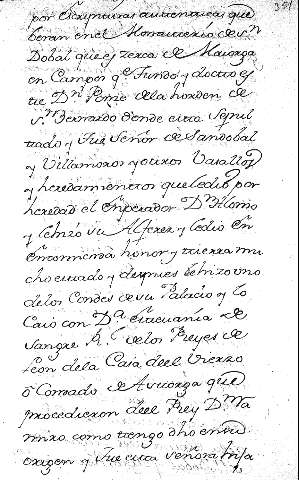 por escripturas autenticas que
beran en el Monasterio de sn
Dobal que es zerca de Maiorga
en Campos qe fundo y docto es
te Dn Ponze de la horden de
sn Bernardo donde esta sepul
tado y fue señor de Sandobal
y Villamoros y otros Vasallos
y heredamientos que le dio por
heredad el Emperador Dn Alonso
y le hizo su Alferez y le dio en
Encomienda honor y tierra mu
cho estado y despues le hizo uno
de los Condes de su Palacio y lo
Caso con Da estevania de
Sangre Rl de los Reyes de
Leon de la Casa de el Vierzo
o Condado de Astorga que
procedieron de el Rey Dn Ra
miro como tengo dho en su
origen y fue esta señora hija